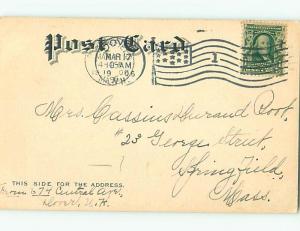 Post Card
MAR 17
4-30 AM
1906
N.H.
1
Mrs. Cassius Durand Root,
#23 George Street,
Springfield,
Mass.
THIS SIDE FOR THE ADDRESS.
From 674 Central Ave.,
Dover, N.H.